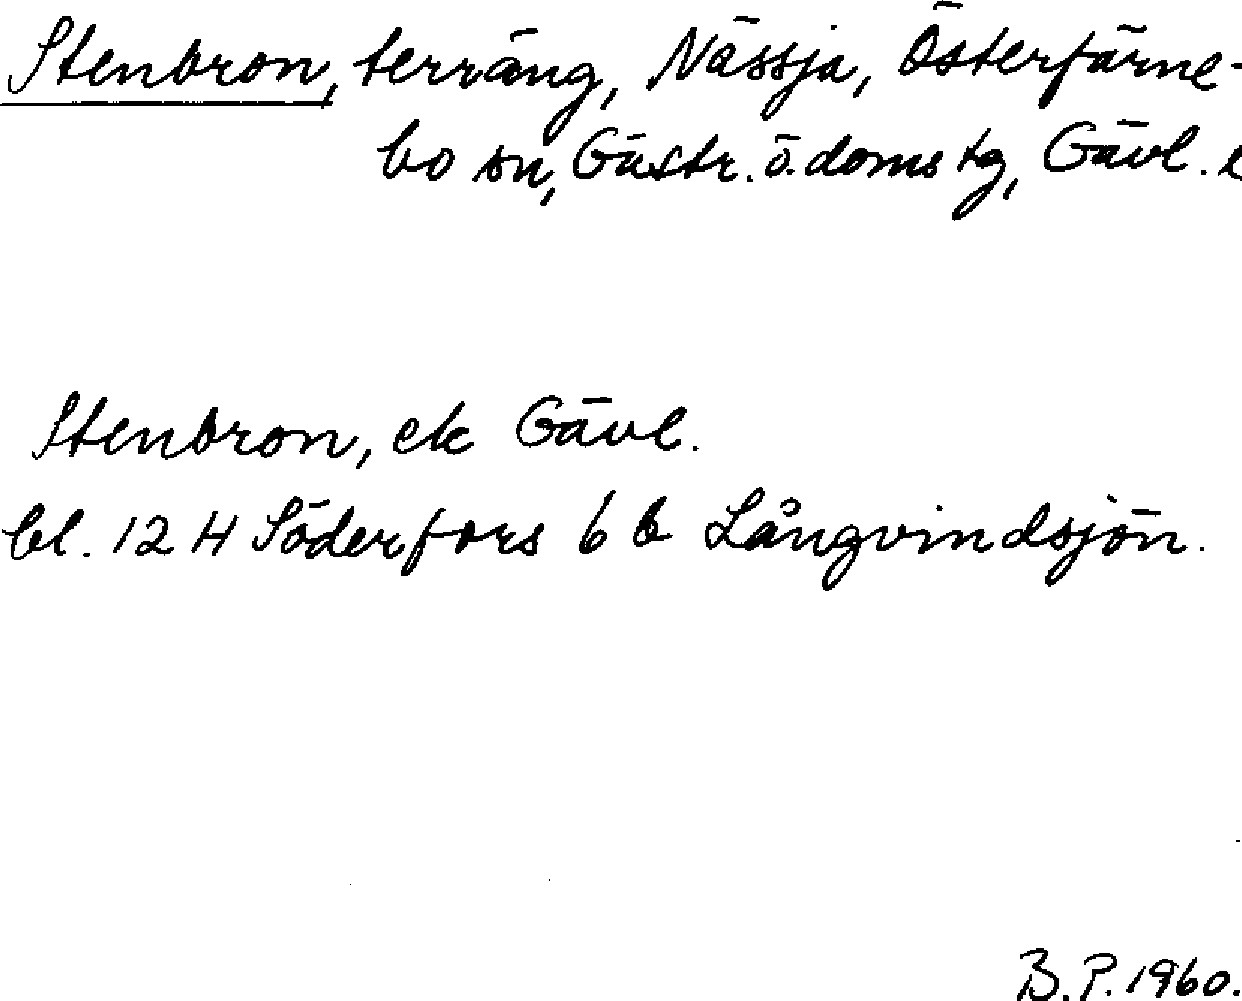 Stenbron, terräng, Nässja, Österfärne-
bo sn, Gästr. ö. doms tg, Gävl.
Stenbron, ek Gävl.
bl. 12 H Söderfors 6 b Långvindsjön.
B. P. 1960.